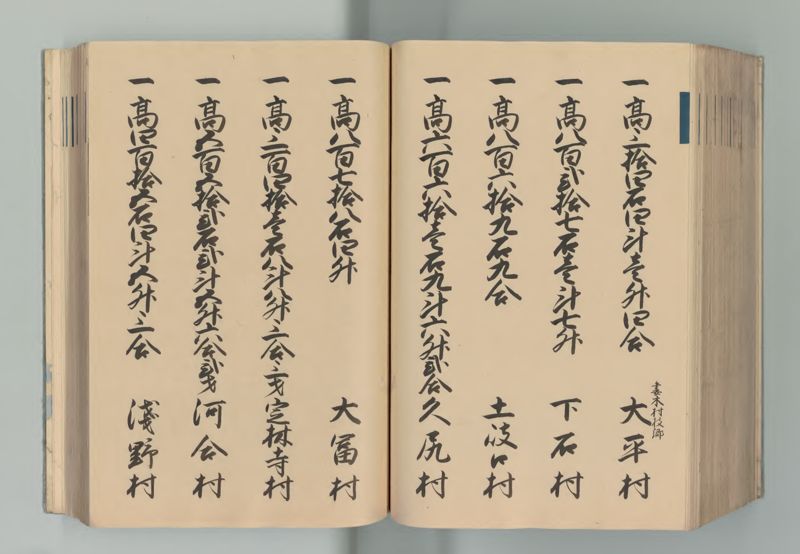 一 高三拾四石四斗壱升四合
妻木村枝郷
大平村
一 高八百弐拾七石壱斗七升 下石村
一 高八百六拾九石九合 土岐口村
一 高六百六拾壱石九斗六升弐合 久尻村
一 高八百七拾八石四升 大冨村
一 高三百四拾壱石八斗八升三合三才 定林寺村
一 高五百五拾弐石弐斗五升六合弐才 河合村
一 高四百拾五石四斗五升三合 浅野村